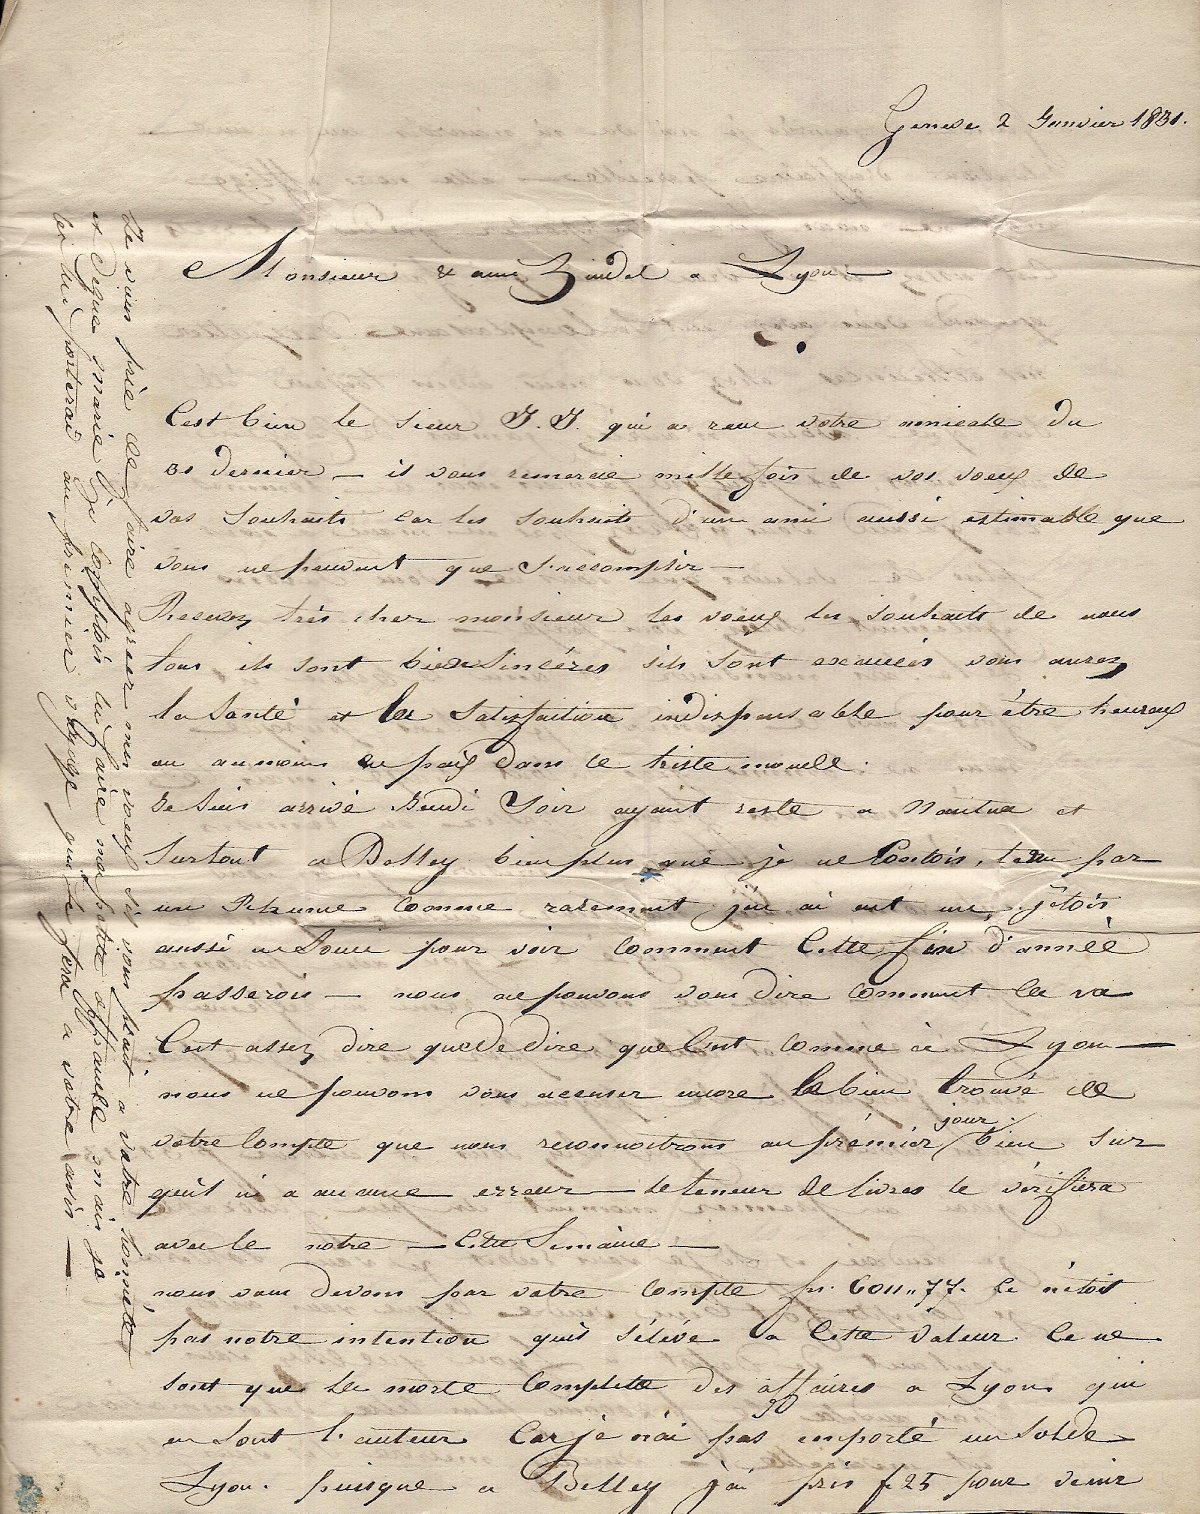 Geneve 2 Janvier 1831.
Monsieur & ami Zindel a Lyon —
C'est bien le sieur J. J. qui a recu votre amicale du
31 dernier — il vous remercie mille fois de vos voeux de
vos souhaits car les souhaits d'un ami aussi estimable que
vous ne peuvent que s'accomplir —
Recevez très cher monsieur les voeux les souhaits de nous
tous ils sont bien sincéres s'ils sont exaucés vous aurez
la santé et les satisfaction indispensable pour être heureux
ou au moins en paix dans ce triste monde.
Je suis arrivé Jeudi soir ayant resté a Nantua et
surtout a Belley bien plus que je ne comptois, tenu par
un Rhume comme rarement j'en ai eut un, j'étois
aussi en souci pour voir comment cette fin d'année
passerois — nous ne pouvons vous dire comment cela va
C'est assez dire que de dire que c'est comme à Lyon —
nous ne pouvons vous accuser encore le bien trouvé de
votre compte que nous reconnoitrons au prémier jour bien sur
qu'il n'i a aucune erreur — le teneur de livres le vérifiera
avec le notre — cette semaine —
nous vous devons par votre compte fr. 6011.77. ce n'étoit
pas notre intention qu'il s'élève a cette valeur. Ce ne
sont que la morte complette des affaires a Lyon qui
en sont l'auteur car je n'ai pas emporté un solde de
Lyon. puisque a Belley j'ai pris f 25 pour venir
Je vous prie de faire agreer mes voeux s'il vous plait a votre honnête
et digne marie que comptois lui faire ma petite offrande mais je
la lui porterai au premier voyage que je ferai a votre ville —